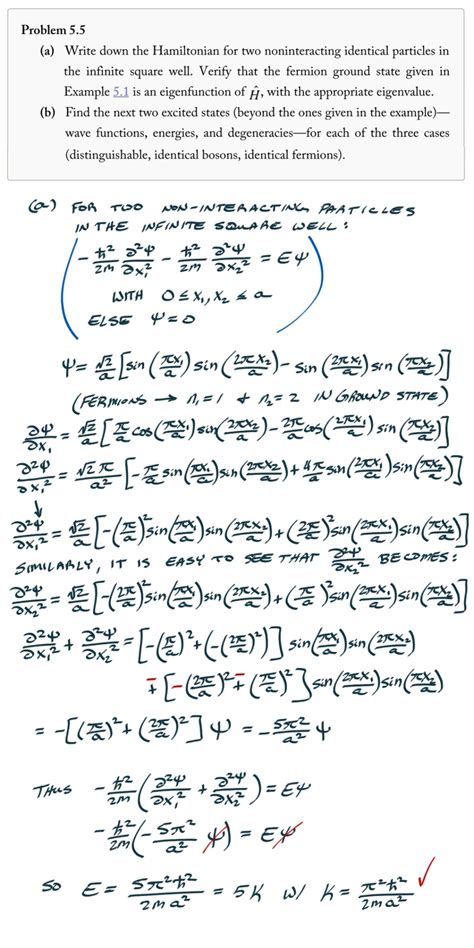 Problem 5.5
(a) Write down the Hamiltonian for two noninteracting identical particles in
the infinite square well. Verify that the fermion ground state given in
Example 5.1 is an eigenfunction of Ĥ, with the appropriate eigenvalue.
(b) Find the next two excited states (beyond the ones given in the example)—
wave functions, energies, and degeneracies—for each of the three cases
(distinguishable, identical bosons, identical fermions).
(a) FOR TWO NON-INTERACTING PARTICLES
IN THE INFINITE SQUARE WELL:
-ħ²/2m ∂²ψ/∂x₁² - ħ²/2m ∂²ψ/∂x₂² = Eψ
WITH 0 ≤ x₁, x₂ ≤ a
ELSE ψ = 0
ψ = √2/a [sin(πx₁/a) sin(2πx₂/a) - sin(2πx₁/a) sin(πx₂/a)]
(FERMIONS → n₁ = 1 & n₂ = 2 IN GROUND STATE)
∂ψ/∂x₁ = √2/a [π/a cos(πx₁/a) sin(2πx₂/a) - 2π/a cos(2πx₁/a) sin(πx₂/a)]
∂²ψ/∂x₁² = √2 π/a² [-π/a sin(πx₁/a) sin(2πx₂/a) + 4π/a sin(2πx₁/a) sin(πx₂/a)]
↓
∂²ψ/∂x₁² = √2/a [-(π/a)² sin(πx₁/a) sin(2πx₂/a) + (2π/a)² sin(2πx₁/a) sin(πx₂/a)]
SIMILARLY, IT IS EASY TO SEE THAT ∂²ψ/∂x₂² BECOMES:
∂²ψ/∂x₂² = √2/a [-(2π/a)² sin(πx₁/a) sin(2πx₂/a) + (π/a)² sin(2πx₁/a) sin(πx₂/a)]
∂²ψ/∂x₁² + ∂²ψ/∂x₂² = [-(π/a)² + (-(2π/a)²)] sin(πx₁/a) sin(2πx₂/a)
∓ [-(2π/a)² ∓ (π/a)²] sin(2πx₁/a) sin(πx₂/a)
= -[(π/a)² + (2π/a)²] ψ = -5π²/a² ψ
THUS -ħ²/2m (∂²ψ/∂x₁² + ∂²ψ/∂x₂²) = Eψ
-ħ²/2m (-5π²/a² ψ) = Eψ
SO E = 5π²ħ²/2ma² = 5K W/ K = π²ħ²/2ma² ✓